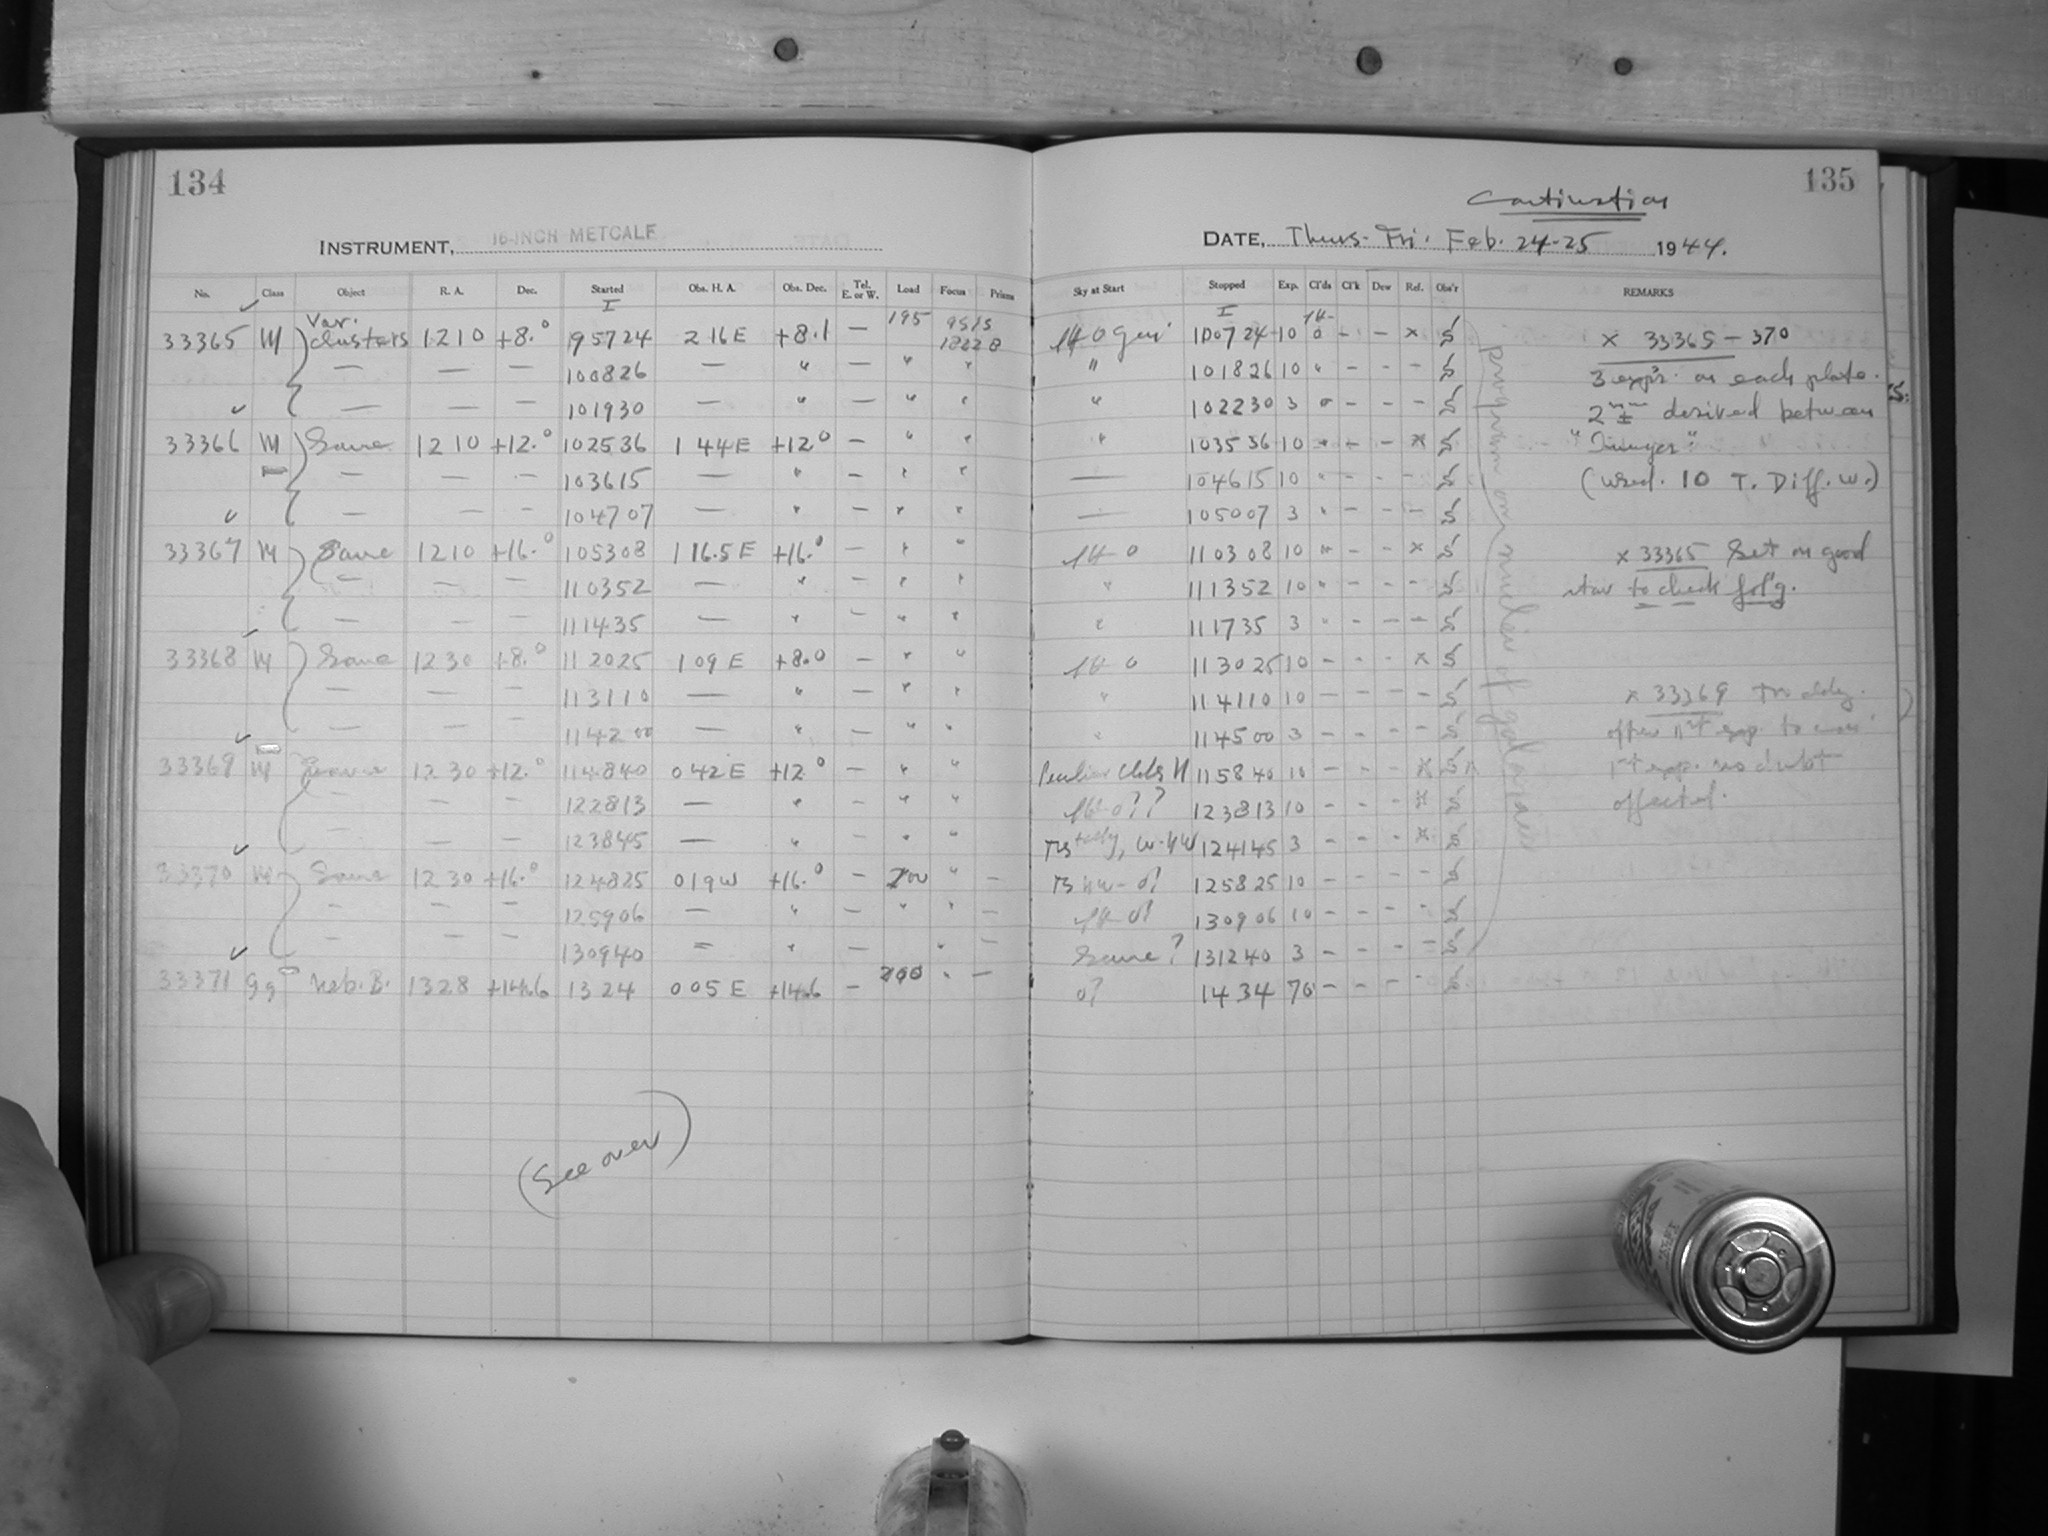 134
INSTRUMENT, 16-INCH METCALF
No. Class Object R. A. Dec. Started Obs. H. A. Obs. Dec. Tel. E. or W. Load Focus Prisms
I
33365 M Var. clusters 12 10 +8.° 9 57 24 2 16 E +8.1 — 195
— — — 10 08 26 — " — " "
— — — 10 19 30 — " — " "
33366 M Same 12 10 +12.° 10 25 36 1 44 E +12.° — " "
— — — 10 36 15 — " — " "
— — — 10 47 07 — " — " "
33367 M Same 12 10 +16.° 10 53 08 1 16.5 E +16.° — " "
— — — 11 03 52 — " — " "
— — — 11 14 35 — " — " "
33368 M Same 12 30 +8.° 11 20 25 1 09 E +8.0 — " "
— — — 11 31 10 — " — " "
— — — 11 42 00 — " — " "
33369 M Same 12 30 +12.° 11 48 40 0 42 E +12.° — " "
— — — 12 28 13 — " — " "
— — — 12 38 45 — " — " "
33370 M Same 12 30 +16.° 12 48 25 0 19 W +16.° — 200 " —
— — — 12 59 06 — " — " " —
— — — 13 09 40 — " — " —
33371 gg Neb. B. 13 28 +14.6 13 24 0 05 E +14.6 — 200 " —
(See over)
135
Continuation
DATE, Thurs-Fri. Feb. 24-25 1944.
Sky at Start Stopped Exp. Cl'ds Cl'k Dew Ref. Obs'r REMARKS
I
10 07 24 10 0 - - x S
" 10 18 26 10 " - - - S
" 10 22 30 3 - - - S
" 10 35 36 10 " - - x S
— 10 46 15 10 " - - - S
— 10 50 07 3 " - - - S
11 03 08 10 " - - x S
" 11 13 52 10 " - - - S
" 11 17 35 3 " - - - S
11 30 25 10 - - - x S
" 11 41 10 10 - - - - S
" 11 45 00 3 - - - - S
Peculiar 11 58 40 10 - - - x S
12 38 13 10 - - - x S
12 41 45 3 - - - x S
12 58 25 10 - - - - S
13 09 06 10 - - - - S
Same? 13 12 40 3 - - - - S
0? 14 34 70 - - - - S
program on outlier of galaxies
x 33365 - 370
3 exp's. on each plate.
2 m ± desired between
"Images"
(Used. 10 T. Diff. W.)
x 33365 Set on good
star to check fol'g.
x 33369
after 1st exp. to
1st exp. no doubt
affected.